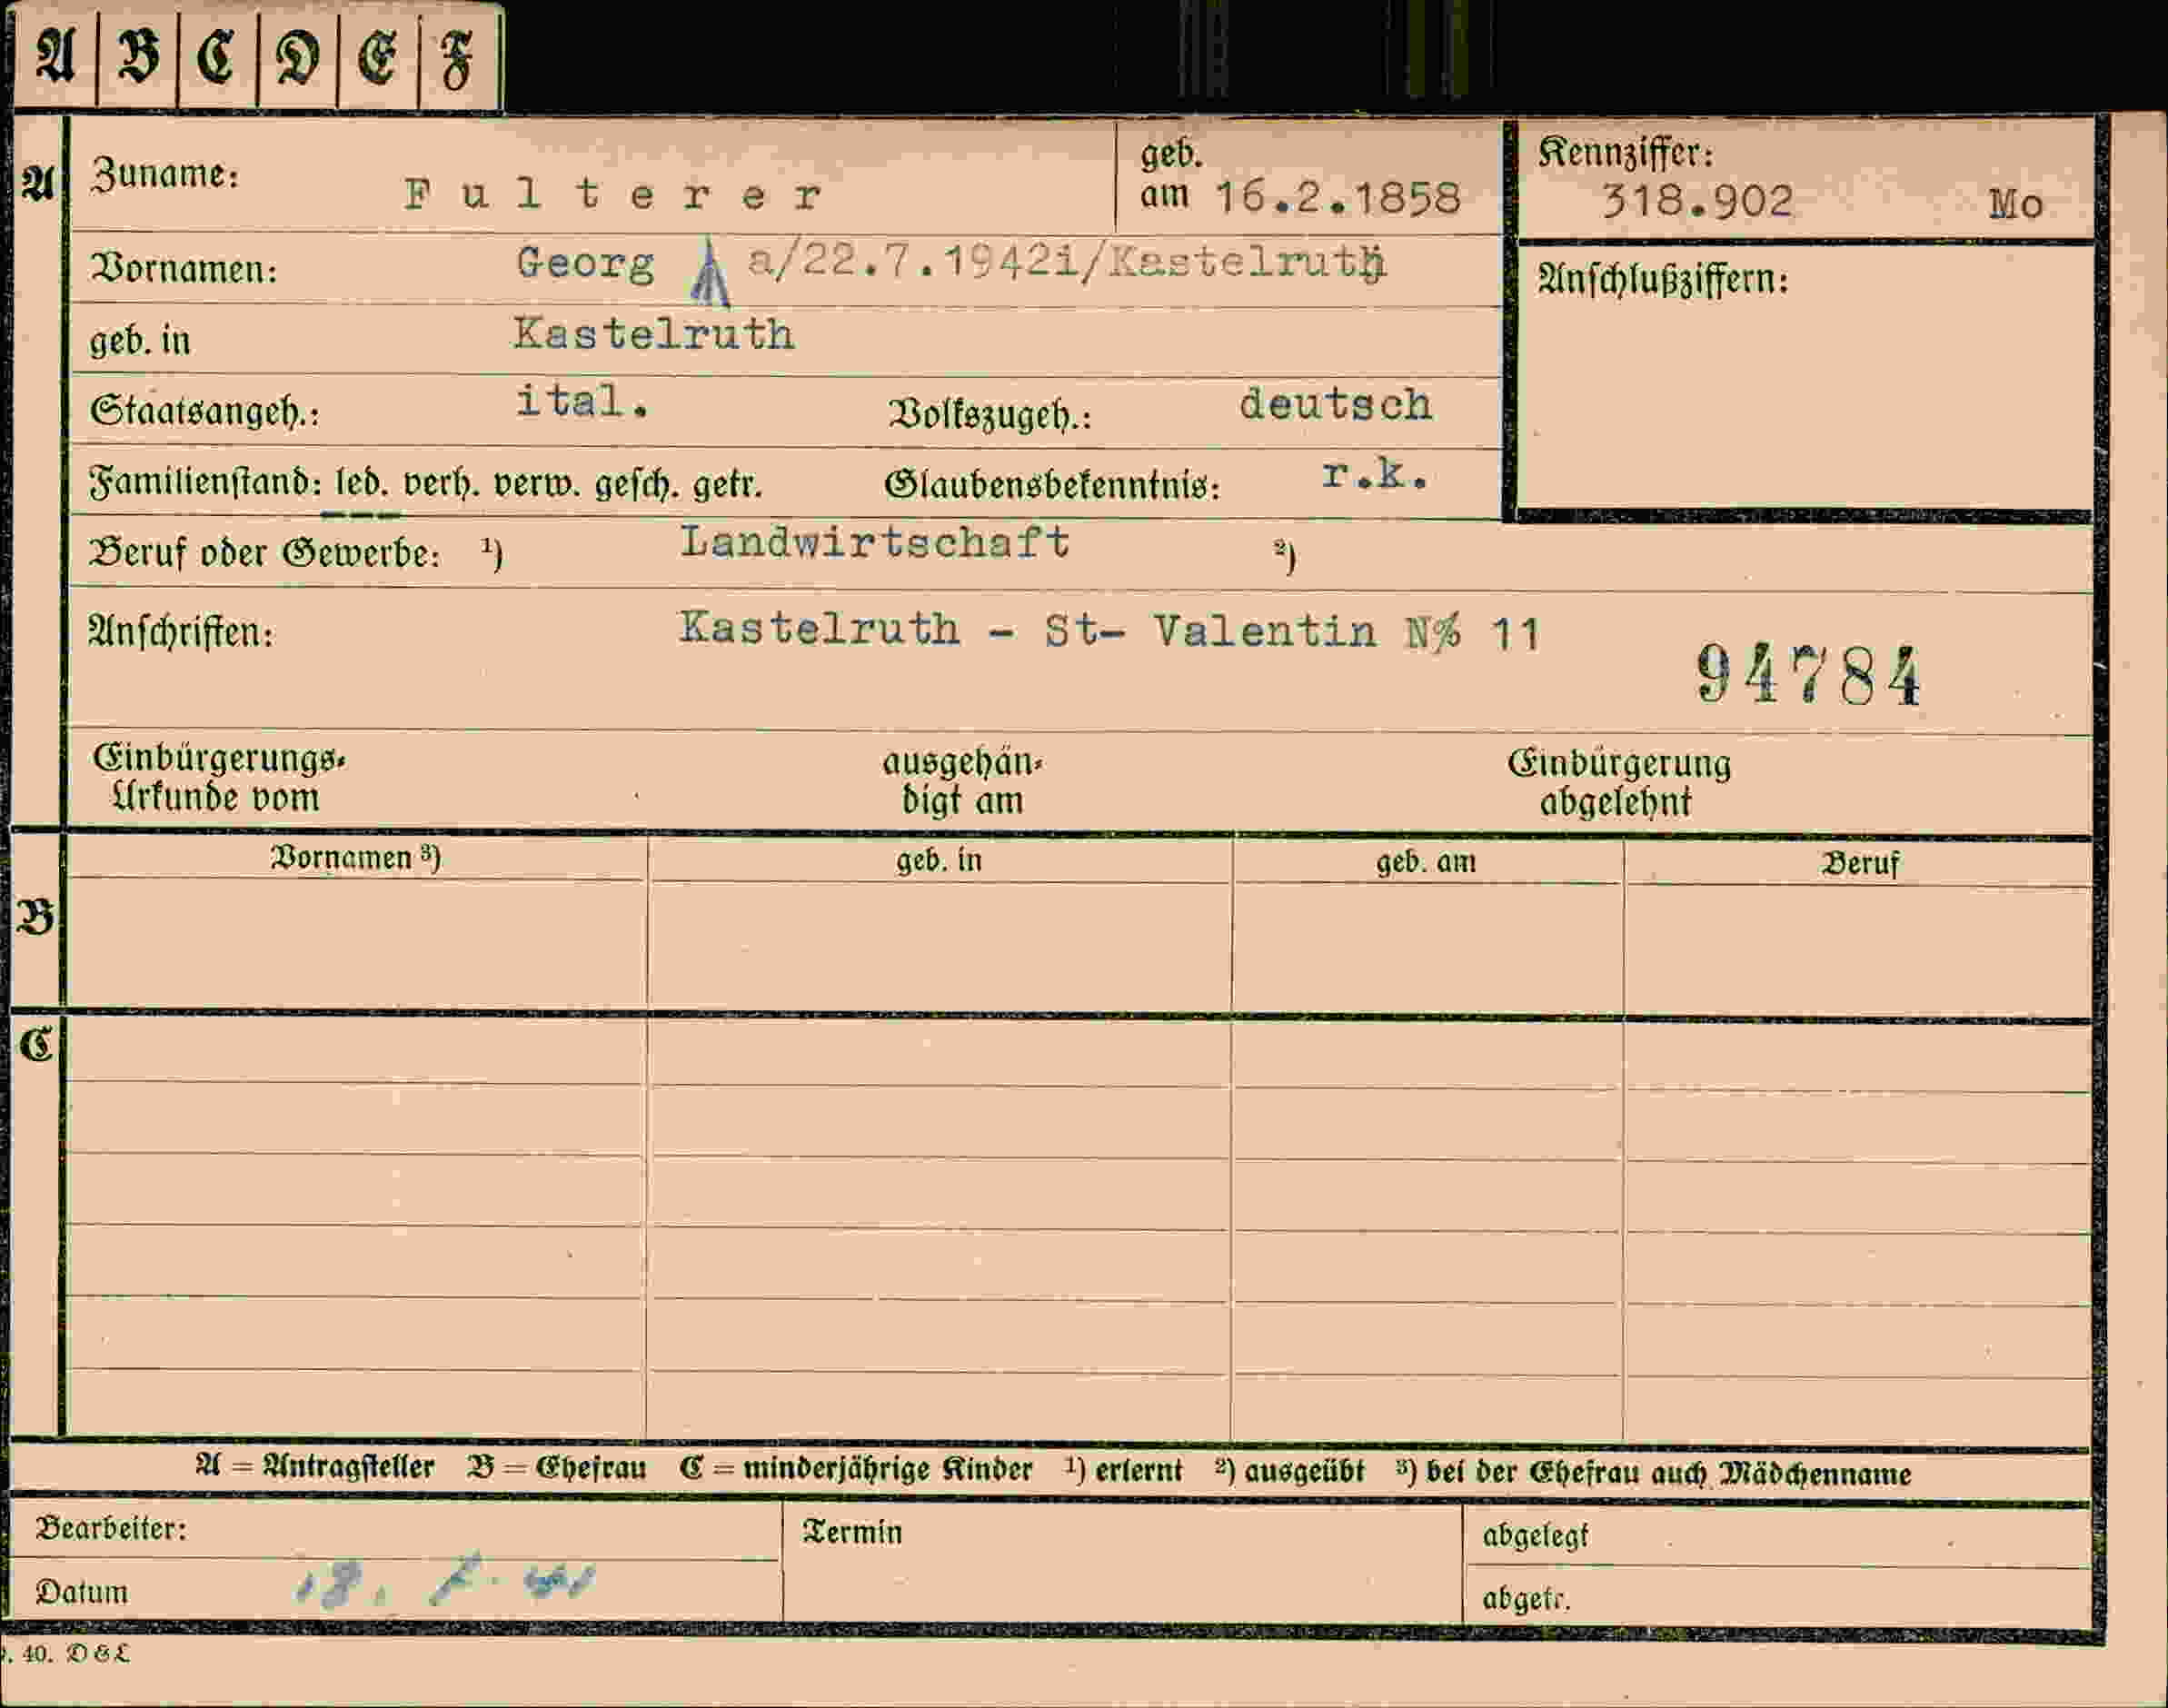 A B C D E F
A Zuname: Fulterer geb. am 16.2.1858 Kennziffer: 318.902 Mo
Vornamen: Georg a/22.7.1942i/Kastelruth
Anschlußziffern:
geb. in Kastelruth
Staatsangeh.: ital. Volkszugeh.: deutsch
Familienstand: led. verh. verw. gesch. getr. Glaubensbekenntnis: r.k.
Beruf oder Gewerbe: ¹) Landwirtschaft ²)
Anschriften: Kastelruth - St- Valentin N% 11
94784
Einbürgerungs-Urkunde vom ausgehändigt am Einbürgerung abgelehnt
Vornamen ³) geb. in geb. am Beruf
B
C
A = Antragsteller B = Ehefrau C = minderjährige Kinder ¹) erlernt ²) ausgeübt ³) bei der Ehefrau auch Mädchenname
Bearbeiter: Termin abgelegt
Datum abgetr.
40. D & L